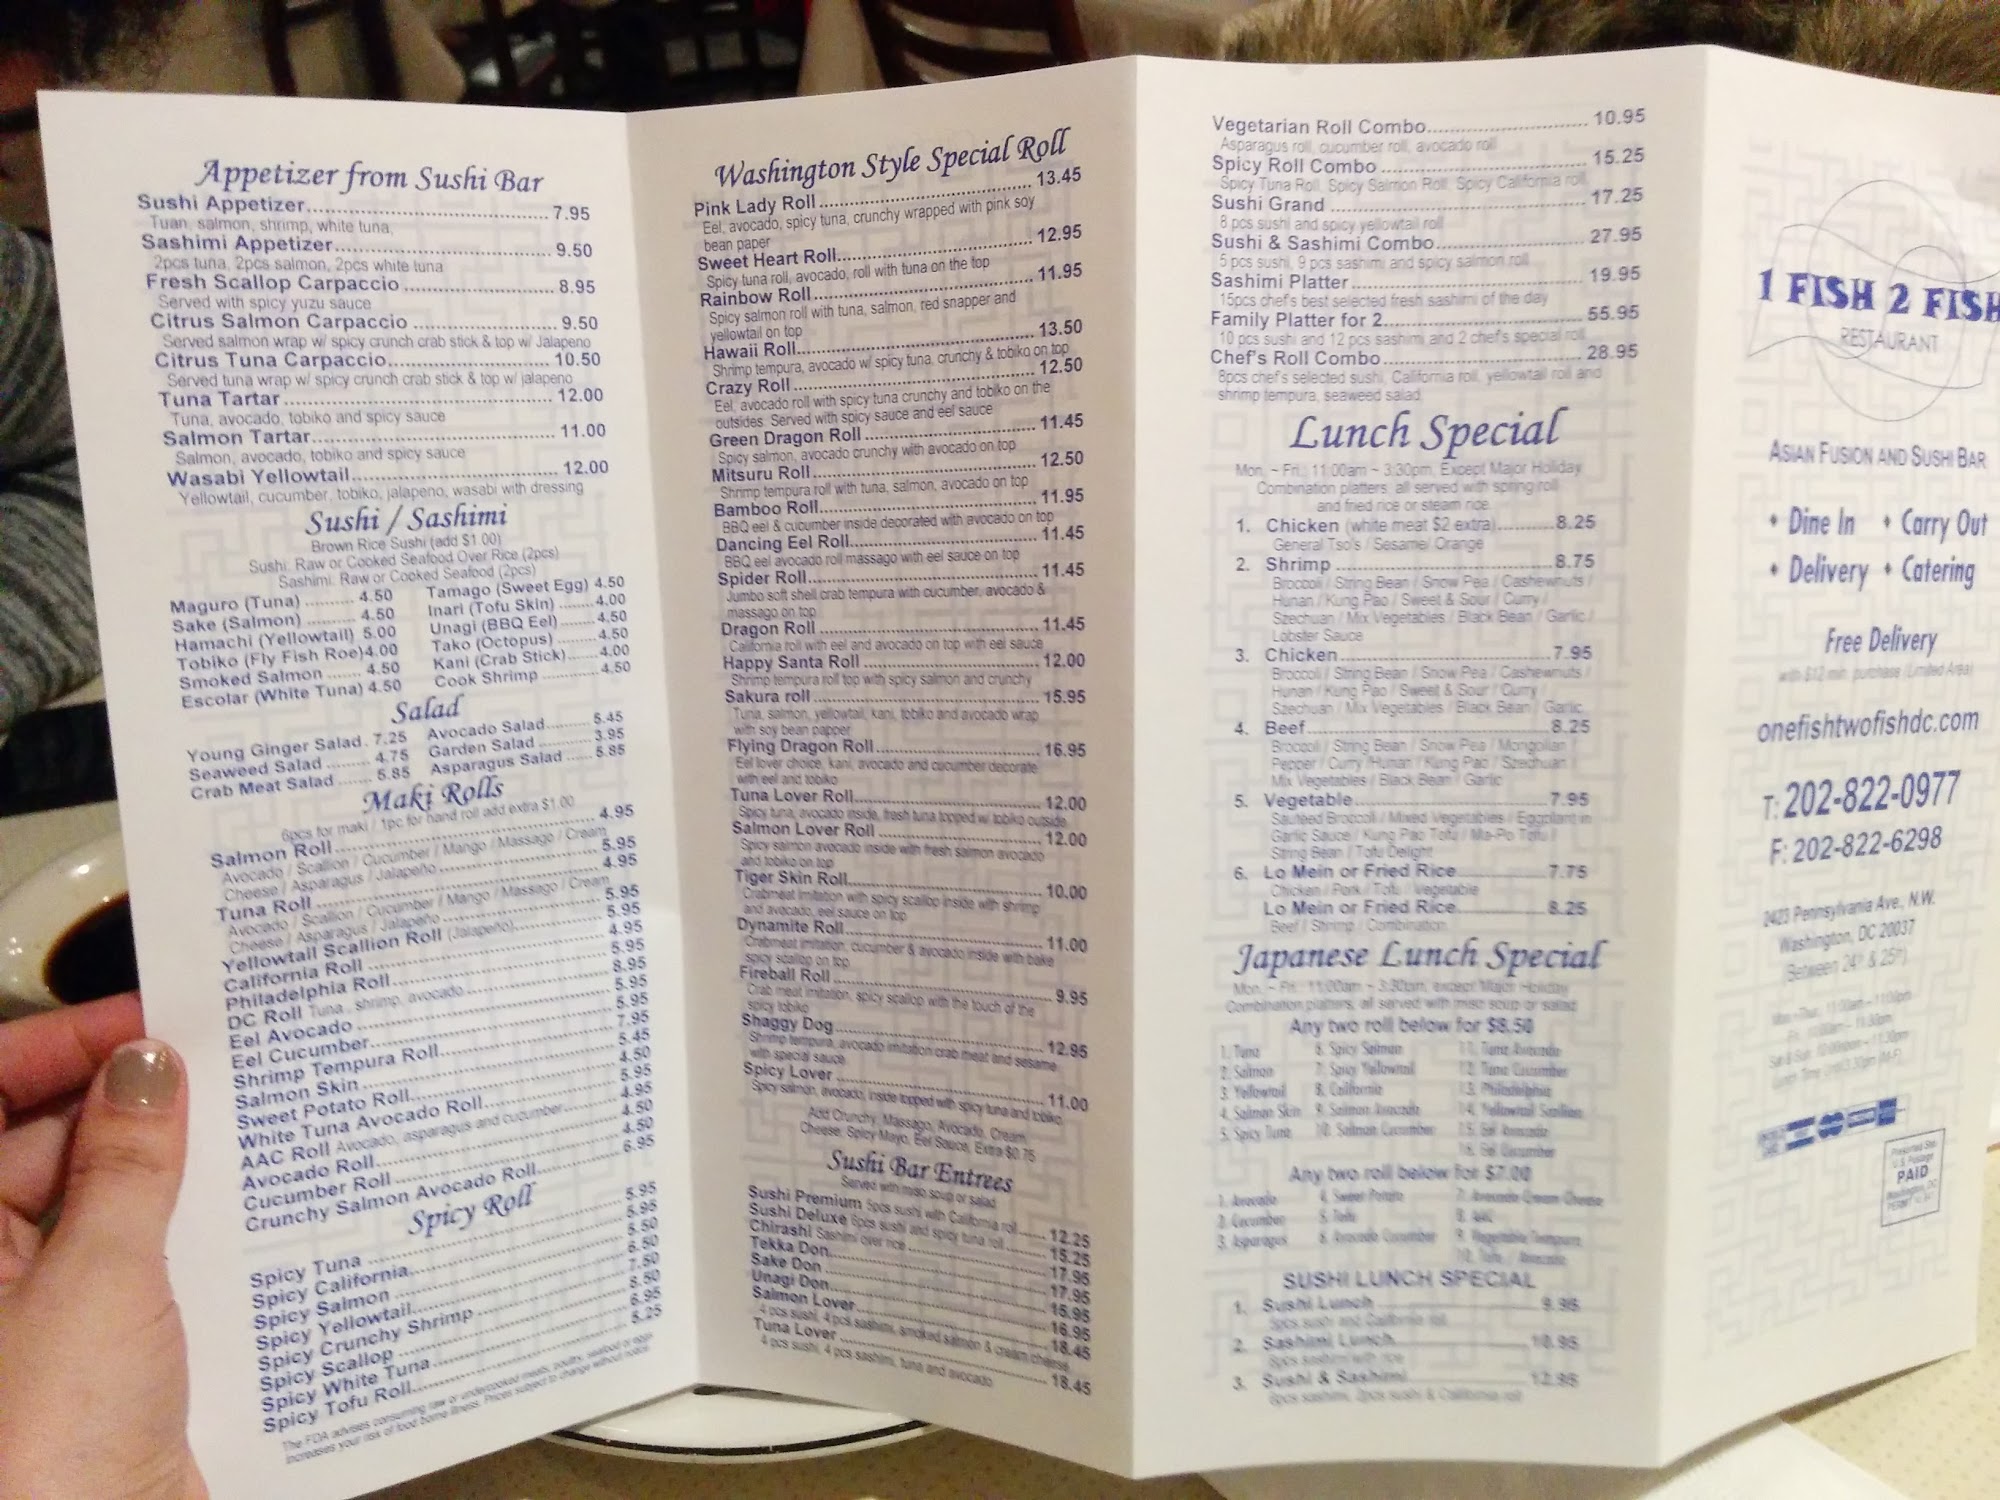 Appetizer from Sushi Bar
Sushi Appetizer 7.95
Tuan, salmon, shrimp, white tuna,
Sashimi Appetizer 9.50
2pcs tuna, 2pcs salmon, 2pcs white tuna
Fresh Scallop Carpaccio 8.95
Served with spicy yuzu sauce
Citrus Salmon Carpaccio 9.50
Served salmon wrap w/ spicy crunch crab stick & top w/ Jalapeno
Citrus Tuna Carpaccio 10.50
Served tuna wrap w/ spicy crunch crab stick & top w/ jalapeno
Tuna Tartar 12.00
Tuna, avocado, tobiko and spicy sauce
Salmon Tartar 11.00
Salmon, avocado, tobiko and spicy sauce
Wasabi Yellowtail 12.00
Yellowtail, cucumber, tobiko, jalapeno, wasabi with dressing
Sushi / Sashimi
Brown Rice Sushi (add $1.00)
Sushi: Raw or Cooked Seafood Over Rice (2pcs)
Sashimi: Raw or Cooked Seafood (2pcs)
Maguro (Tuna) 4.50
Sake (Salmon) 4.50
Hamachi (Yellowtail) 5.00
Tobiko (Fly Fish Roe) 4.00
Smoked Salmon 4.50
Escolar (White Tuna) 4.50
Tamago (Sweet Egg) 4.50
Inari (Tofu Skin) 4.00
Unagi (BBQ Eel) 4.50
Tako (Octopus) 4.50
Kani (Crab Stick) 4.00
Cook Shrimp 4.50
Salad
Young Ginger Salad 7.25
Seaweed Salad 4.75
Crab Meat Salad 5.85
Avocado Salad 5.45
Garden Salad 3.95
Asparagus Salad 5.85
Maki Rolls
6pcs for maki / 1pc for hand roll add extra $1.00
Salmon Roll 4.95
Avocado / Scallion / Cucumber / Mango / Massago / Cream
Cheese / Asparagus / Jalapeño 5.95
Tuna Roll 4.95
Avocado / Scallion / Cucumber / Mango / Massago / Cream
Cheese / Asparagus / Jalapeño 5.95
Yellowtail Scallion Roll (Jalapeño) 5.95
California Roll 4.95
Philadelphia Roll 5.95
DC Roll Tuna, shrimp, avocado 8.95
Eel Avocado 5.95
Eel Cucumber 5.95
Shrimp Tempura Roll 7.95
Salmon Skin 5.45
Sweet Potato Roll 4.50
White Tuna Avocado Roll 5.95
AAC Roll Avocado, asparagus and cucumber 4.95
Avocado Roll 4.50
Cucumber Roll 4.50
Crunchy Salmon Avocado Roll 6.95
Spicy Roll
Spicy Tuna 5.95
Spicy California 5.95
Spicy Salmon 5.50
Spicy Yellowtail 6.50
Spicy Crunchy Shrimp 7.50
Spicy Scallop 8.50
Spicy White Tuna 6.95
Spicy Tofu Roll 5.25
The FDA advises consuming raw or undercooked meats, poultry, seafood or eggs
increases your risk of food borne illness. Prices subject to change without notice.
Washington Style Special Roll
Pink Lady Roll 13.45
Eel, avocado, spicy tuna, crunchy wrapped with pink soy
bean paper
Sweet Heart Roll 12.95
Spicy tuna roll, avocado, roll with tuna on the top
Rainbow Roll 11.95
Spicy salmon roll with tuna, salmon, red snapper and
yellowtail on top
Hawaii Roll 13.50
Shrimp tempura, avocado w/ spicy tuna, crunchy & tobiko on top
Crazy Roll 12.50
Eel, avocado roll with spicy tuna crunchy and tobiko on the
outsides. Served with spicy sauce and eel sauce
Green Dragon Roll 11.45
Spicy salmon, avocado crunchy with avocado on top
Mitsuru Roll 12.50
Shrimp tempura roll with tuna, salmon, avocado on top
Bamboo Roll 11.95
BBQ eel & cucumber inside decorated with avocado on top
Dancing Eel Roll 11.45
BBQ eel avocado roll massago with eel sauce on top
Spider Roll 11.45
Jumbo soft shell crab tempura with cucumber, avocado &
massago on top
Dragon Roll 11.45
California roll with eel and avocado on top with eel sauce
Happy Santa Roll 12.00
Shrimp tempura roll top with spicy salmon and crunchy
Sakura roll 15.95
Tuna, salmon, yellowtail, kani, tobiko and avocado wrap
with soy bean papper
Flying Dragon Roll 16.95
Eel lover choice, kani, avocado and cucumber decorate
with eel and tobiko
Tuna Lover Roll 12.00
Spicy tuna, avocado inside, fresh tuna topped w/ tobiko outside
Salmon Lover Roll 12.00
Spicy salmon avocado inside with fresh salmon avocado
and tobiko on top
Tiger Skin Roll 10.00
Crabmeat imitation with spicy scallop inside with shrimp
and avocado, eel sauce on top
Dynamite Roll 11.00
Crabmeat imitation, cucumber & avocado inside with bake
spicy scallop on top
Fireball Roll 9.95
Crab meat imitation, spicy scallop with the touch of the
spicy tobiko
Shaggy Dog 12.95
Shrimp tempura, avocado imitation crab meat and sesame
with special sauce
Spicy Lover 11.00
Spicy salmon, avocado, inside topped with spicy tuna and tobiko
Add Crunchy, Massago, Avocado, Cream
Cheese, Spicy Mayo, Eel Sauce, Extra $0.75
Sushi Bar Entrees
Served with miso soup or salad
Sushi Premium 5pcs sushi with California roll 12.25
Sushi Deluxe 6pcs sushi and spicy tuna roll 15.25
Chirashi Sashimi over rice 17.95
Tekka Don 17.95
Sake Don 15.95
Unagi Don 16.95
Salmon Lover 18.45
4 pcs sushi, 4 pcs sashimi, smoked salmon & cream cheese
Tuna Lover 18.45
4 pcs sushi, 4 pcs sashimi, tuna and avocado
Vegetarian Roll Combo 10.95
Asparagus roll, cucumber roll, avocado roll
Spicy Roll Combo 15.25
Spicy Tuna Roll, Spicy Salmon Roll, Spicy California roll
Sushi Grand 17.25
8 pcs sushi and spicy yellowtail roll
Sushi & Sashimi Combo 27.95
5 pcs sushi, 9 pcs sashimi and spicy salmon roll
Sashimi Platter 19.95
15pcs chef's best selected fresh sashimi of the day
Family Platter for 2 55.95
10 pcs sushi and 12 pcs sashimi and 2 chef's special roll
Chef's Roll Combo 28.95
8pcs chef's selected sushi, California roll, yellowtail roll and
shrimp tempura, seaweed salad
Lunch Special
Mon. ~ Fri.: 11:00am ~ 3:30pm, Except Major Holiday
Combination platters, all served with spring roll
and fried rice or steam rice
1. Chicken (white meat $2 extra) 8.25
General Tso's / Sesame/ Orange
2. Shrimp 8.75
Broccoli / String Bean / Snow Pea / Cashewnuts /
Hunan / Kung Pao / Sweet & Sour / Curry /
Szechuan / Mix Vegetables / Black Bean / Garlic /
Lobster Sauce
3. Chicken 7.95
Broccoli / String Bean / Snow Pea / Cashewnuts /
Hunan / Kung Pao / Sweet & Sour / Curry /
Szechuan / Mix Vegetables / Black Bean / Garlic
4. Beef 8.25
Broccoli / String Bean / Snow Pea / Mongolian /
Pepper / Curry /Hunan / Kung Pao / Szechuan /
Mix Vegetables / Black Bean / Garlic
5. Vegetable 7.95
Sauteed Broccoli / Mixed Vegetables / Eggplant in
Garlic Sauce / Kung Pao Tofu / Ma-Po Tofu /
String Bean / Tofu Delight
6. Lo Mein or Fried Rice 7.75
Chicken / Pork / Tofu / Vegetable
Lo Mein or Fried Rice 8.25
Beef / Shrimp / Combination
Japanese Lunch Special
Mon. ~ Fri.: 11:00am ~ 3:30pm, except Major Holiday
Combination platters, all served with miso soup or salad
Any two roll below for $8.50
1. Tuna
2. Salmon
3. Yellowtail
4. Salmon Skin
5. Spicy Tuna
6. Spicy Salmon
7. Spicy Yellowtail
8. California
9. Salmon Avocado
10. Salmon Cucumber
11. Tuna Avocado
12. Tuna Cucumber
13. Philadelphia
14. Yellowtail Scallion
15. Eel Avocado
16. Eel Cucumber
Any two roll below for $7.00
1. Avocado
2. Cucumber
3. Asparagus
4. Sweet Potato
5. Tofu
6. Avocado Cucumber
7. Avocado Cream Cheese
8. AAC
9. Vegetable Tempura
10. Tofu / Avocado
SUSHI LUNCH SPECIAL
1. Sushi Lunch 9.95
5pcs sushi and California roll
2. Sashimi Lunch 10.95
sashimi with rice
3. Sushi & Sashimi 12.95
sashimi, sushi & California roll
1 FISH 2 FISH
RESTAURANT
ASIAN FUSION AND SUSHI BAR
• Dine In • Carry Out
• Delivery • Catering
Free Delivery
with $12 min. purchase (Limited Area)
onefishtwofishdc.com
T: 202-822-0977
F: 202-822-6298
2423 Pennsylvania Ave., N.W.
Washington, DC 20037
Between 24th & 25th)
Presorted Std
U.S. Postage
PAID